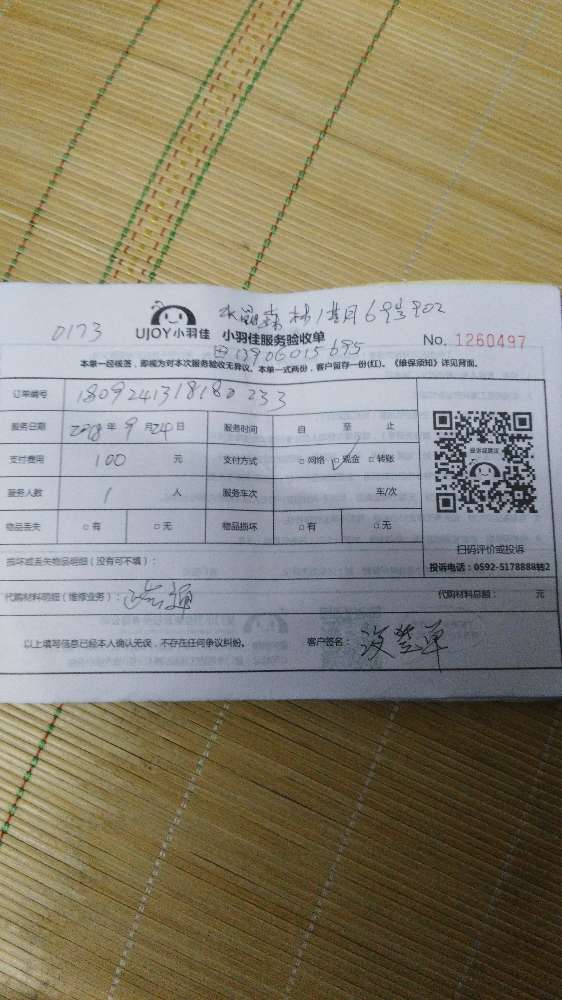 水晶森林1期69号902
0173
UJOY小羽佳 小羽佳服务验收单 No. 1260497
13906015695
本单一经核签，即视为对本次服务验收无异议。本单一式两份，客户留存一份(红)。《维保须知》详见背面。
订单编号 1809241318180233
服务日期 2018年9月24日 服务时间 自 至 止
支付费用 100 元 支付方式 □网络 □现金 □转账
服务人数 1 人 服务车次 车/次
物品丢失 □有 □无 物品损坏 □有 □无
投诉或建议
扫码评价或投诉
投诉电话：0592-5178888转2
损坏或丢失物品明细（没有可不填）：
代购材料明细（维修业务）： 代购材料总额： 元
以上填写信息已经本人确认无误，不存在任何争议纠纷。 客户签名：